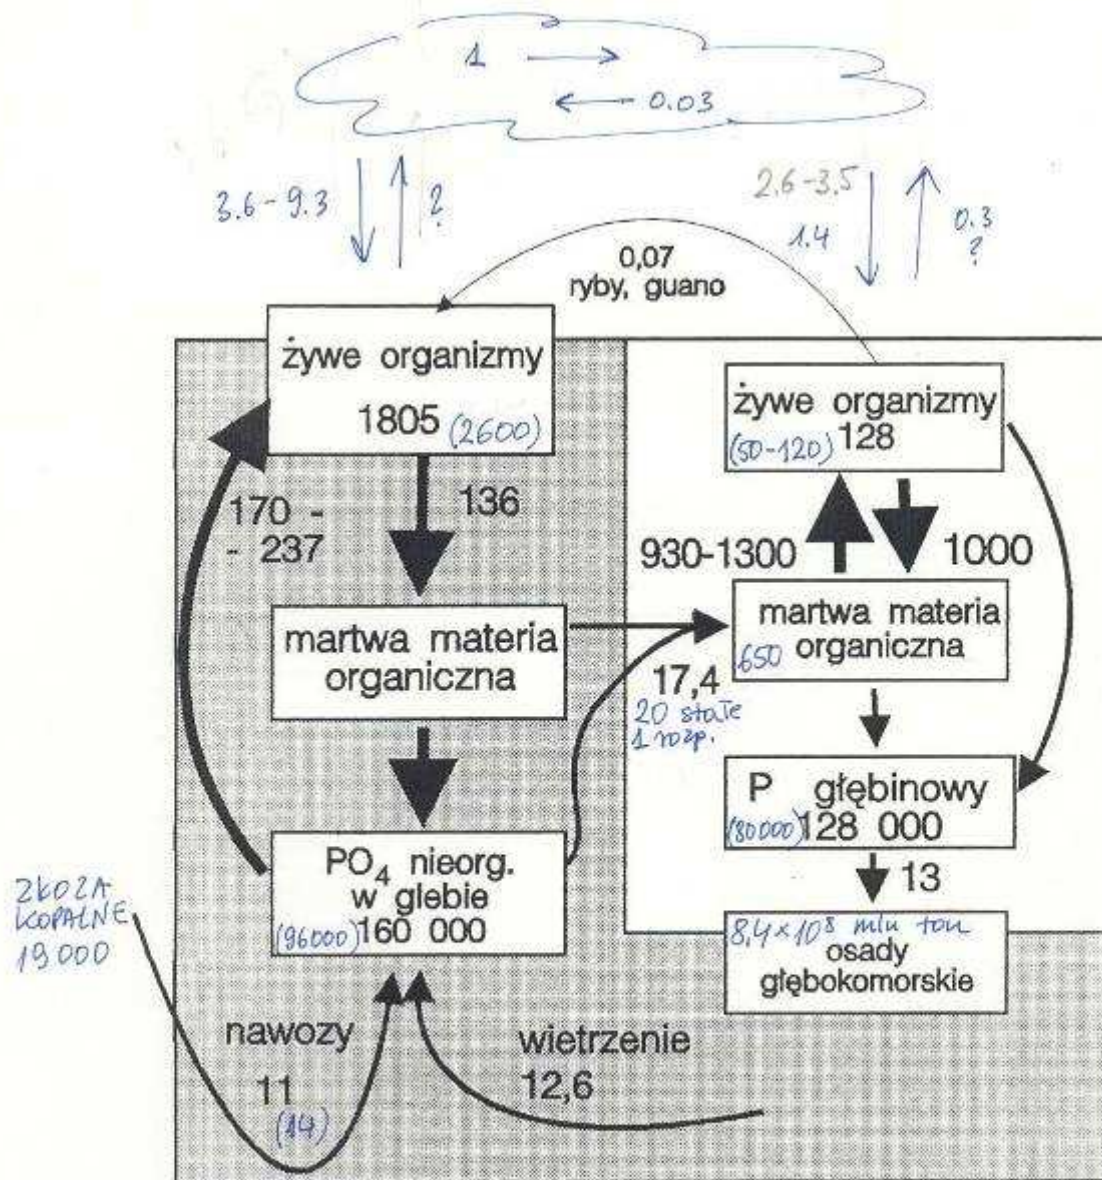 1
0.03
3.6-9.3
?
2.6-3.5
1.4
0.3
?
0,07
ryby, guano
żywe organizmy
1805 (2600)
170 -
- 237
136
martwa materia
organiczna
PO₄ nieorg.
w glebie
(96000) 160 000
ZŁOŻA
KOPALNE
19 000
nawozy
11
(14)
wietrzenie
12,6
żywe organizmy
(50-120) 128
930-1300
1000
martwa materia
650 organiczna
17,4
20 stałe
1 rozp.
P głębinowy
(80000) 128 000
13
8,4×10⁸ mln ton
osady
głębokomorskie